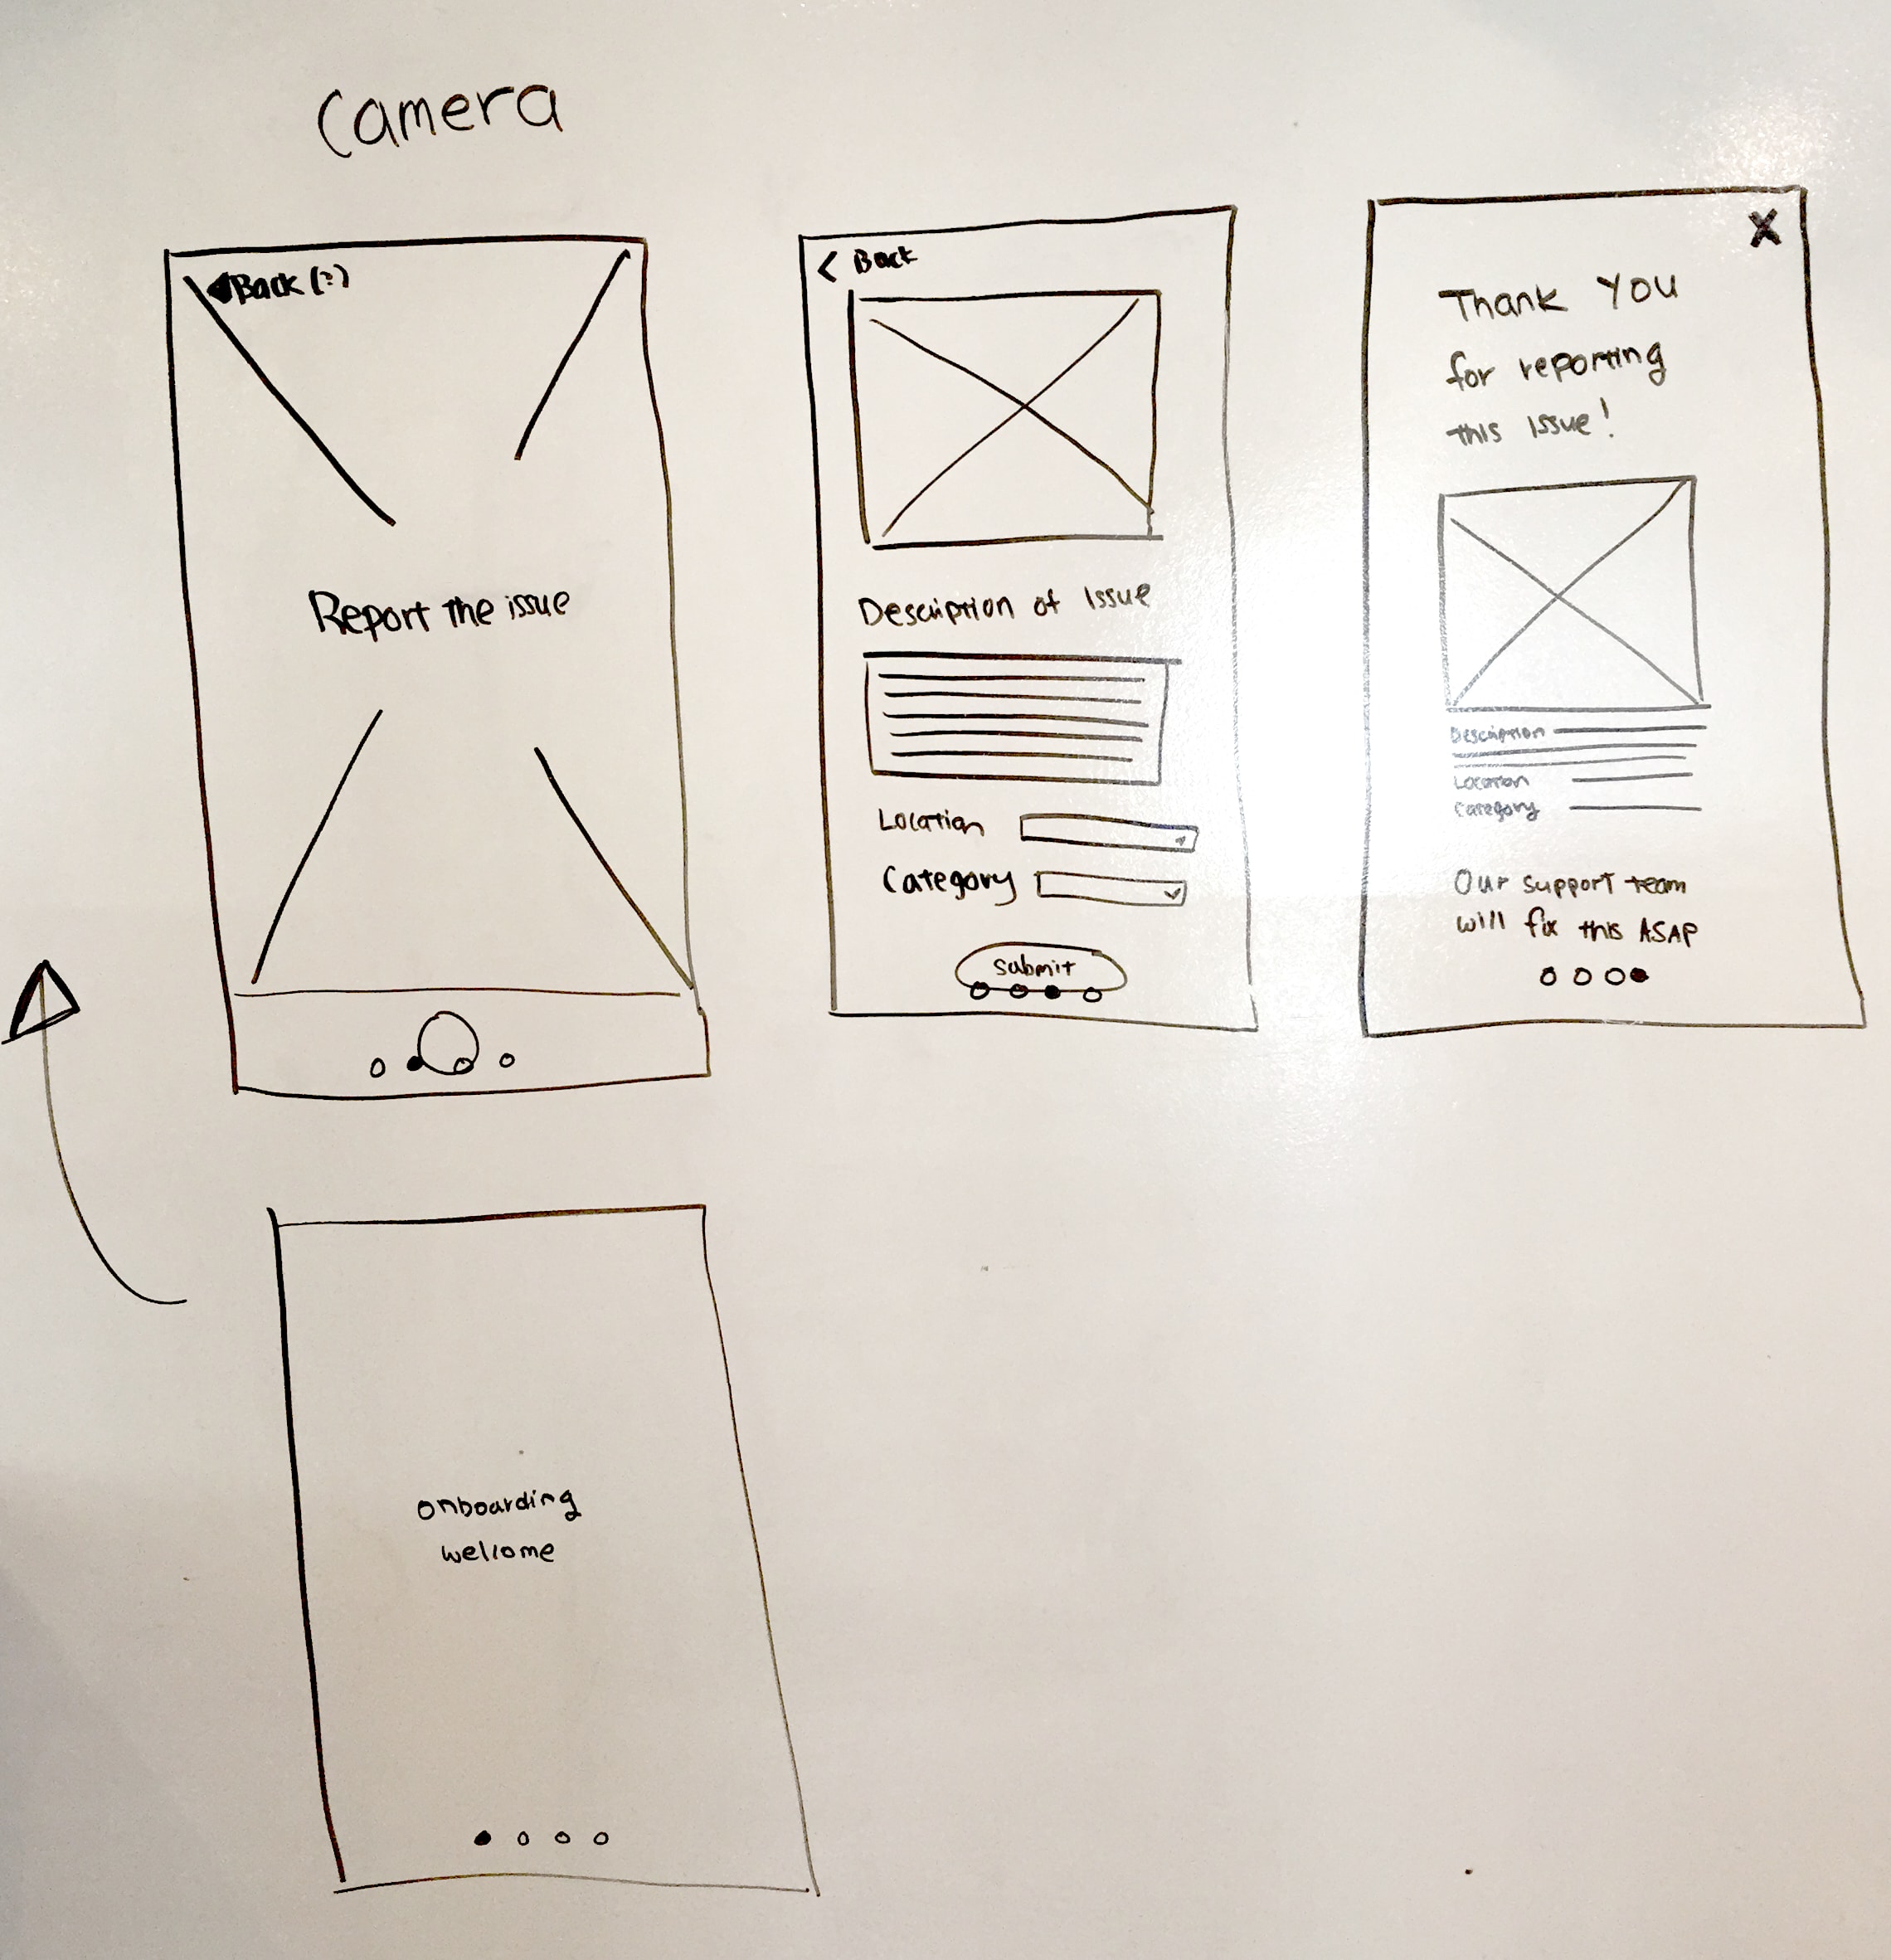 Camera
Back (?)
Report the issue
< Back
Description of Issue
Location
Category
Submit
X
Thank You
for reporting
this issue!
Description
Location
Category
Our support team
will fix this ASAP
onboarding
welcome